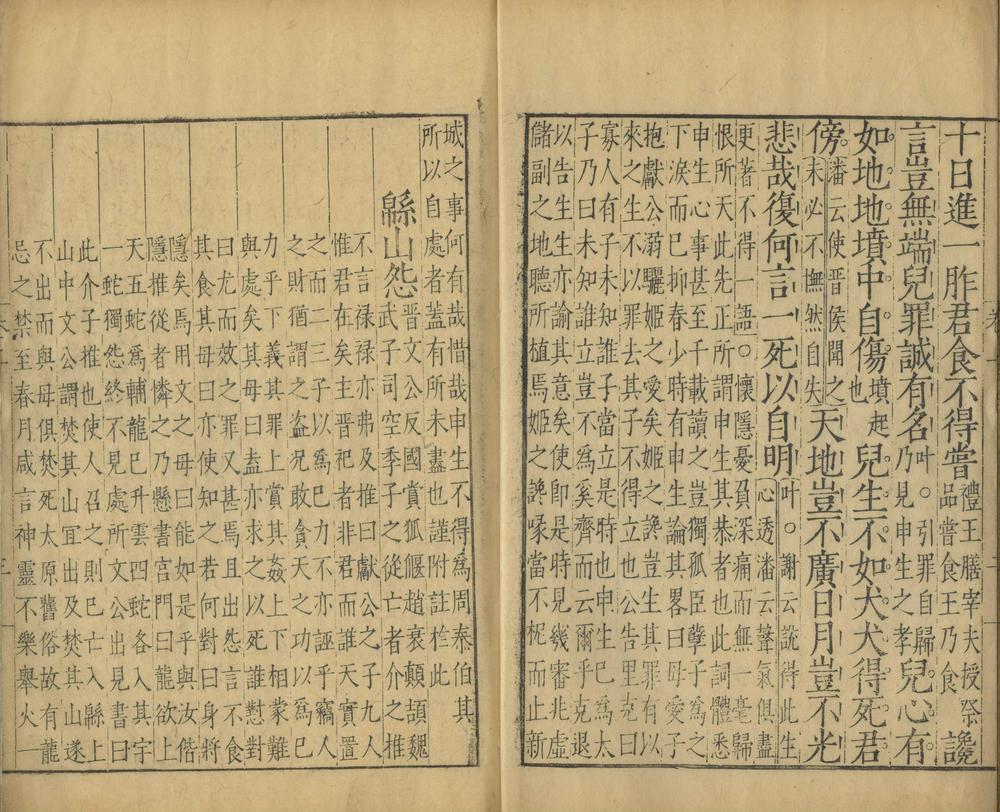 十日進一胙君食不得嘗禮王膳宰夫授祭品嘗食王乃食讒
言豈無端兒罪誠有名叶。引罪自歸乃見申生之孝兒心有
如地地墳中自傷墳起也兒生不如犬犬得死君
傍潘云使晉侯聞之未必不憮然自失天地豈不廣日月豈不光
悲哉復何言一死以自明叶。謝云說得此生心透潘云聲氣俱盡
更著不得一語。懷隱憂負深痛而無一毫歸
恨所天此先正所謂申生其恭者也此詞體悉
申生心事甚至千載讀之豈獨孤臣孽子為之
下淚而已抑春少時有申生論其畧曰母愛子
抱獻公溺驪姬之愛矣姬之讒豈生其罪有以
來之生不以罪去其子不得立也公告里克曰
寡人有子未知誰子當立是時也申生已為太
子乃曰未知誰立豈不為奚齊而云爾乎克退
以告生生亦諭其意矣使即是時見幾審兆虛
儲副之地聽所植焉姬之讒啄當不柅而止新
城之事何有哉惜哉申生不得為周泰伯其
所以自處者蓋有所未盡也謹附註於此
緜山怨晉文公反國賞狐偃趙衰顛頡魏武子司空季子之從亡者介之推
不言祿祿亦弗及推曰獻公之子九人
惟君在矣主晉祀者非君而誰天實置
之而二三子以為己力不亦誣乎竊人
之財猶謂之盜況敢貪天之功以為己
力乎下義其罪上賞其姦上下相蒙難
與處矣其母曰盍亦求之以死誰懟對
曰尤而效之罪又甚焉且出怨言不食
其食其母曰亦使知之若何對曰身將
隱矣焉用文之母曰能如是乎與汝偕
隱推從者憐之乃懸書宮門曰龍欲上
天五蛇為輔龍已升雲四蛇各入其宇
一蛇獨怨終不見處所文公出見書曰
此介子推也使人召之則已亡入緜上
山中文公謂焚其山宜出及焚其山遂
不出而與母俱焚死太原舊俗故有龍
忌之禁至春月咸言神靈不樂舉火一